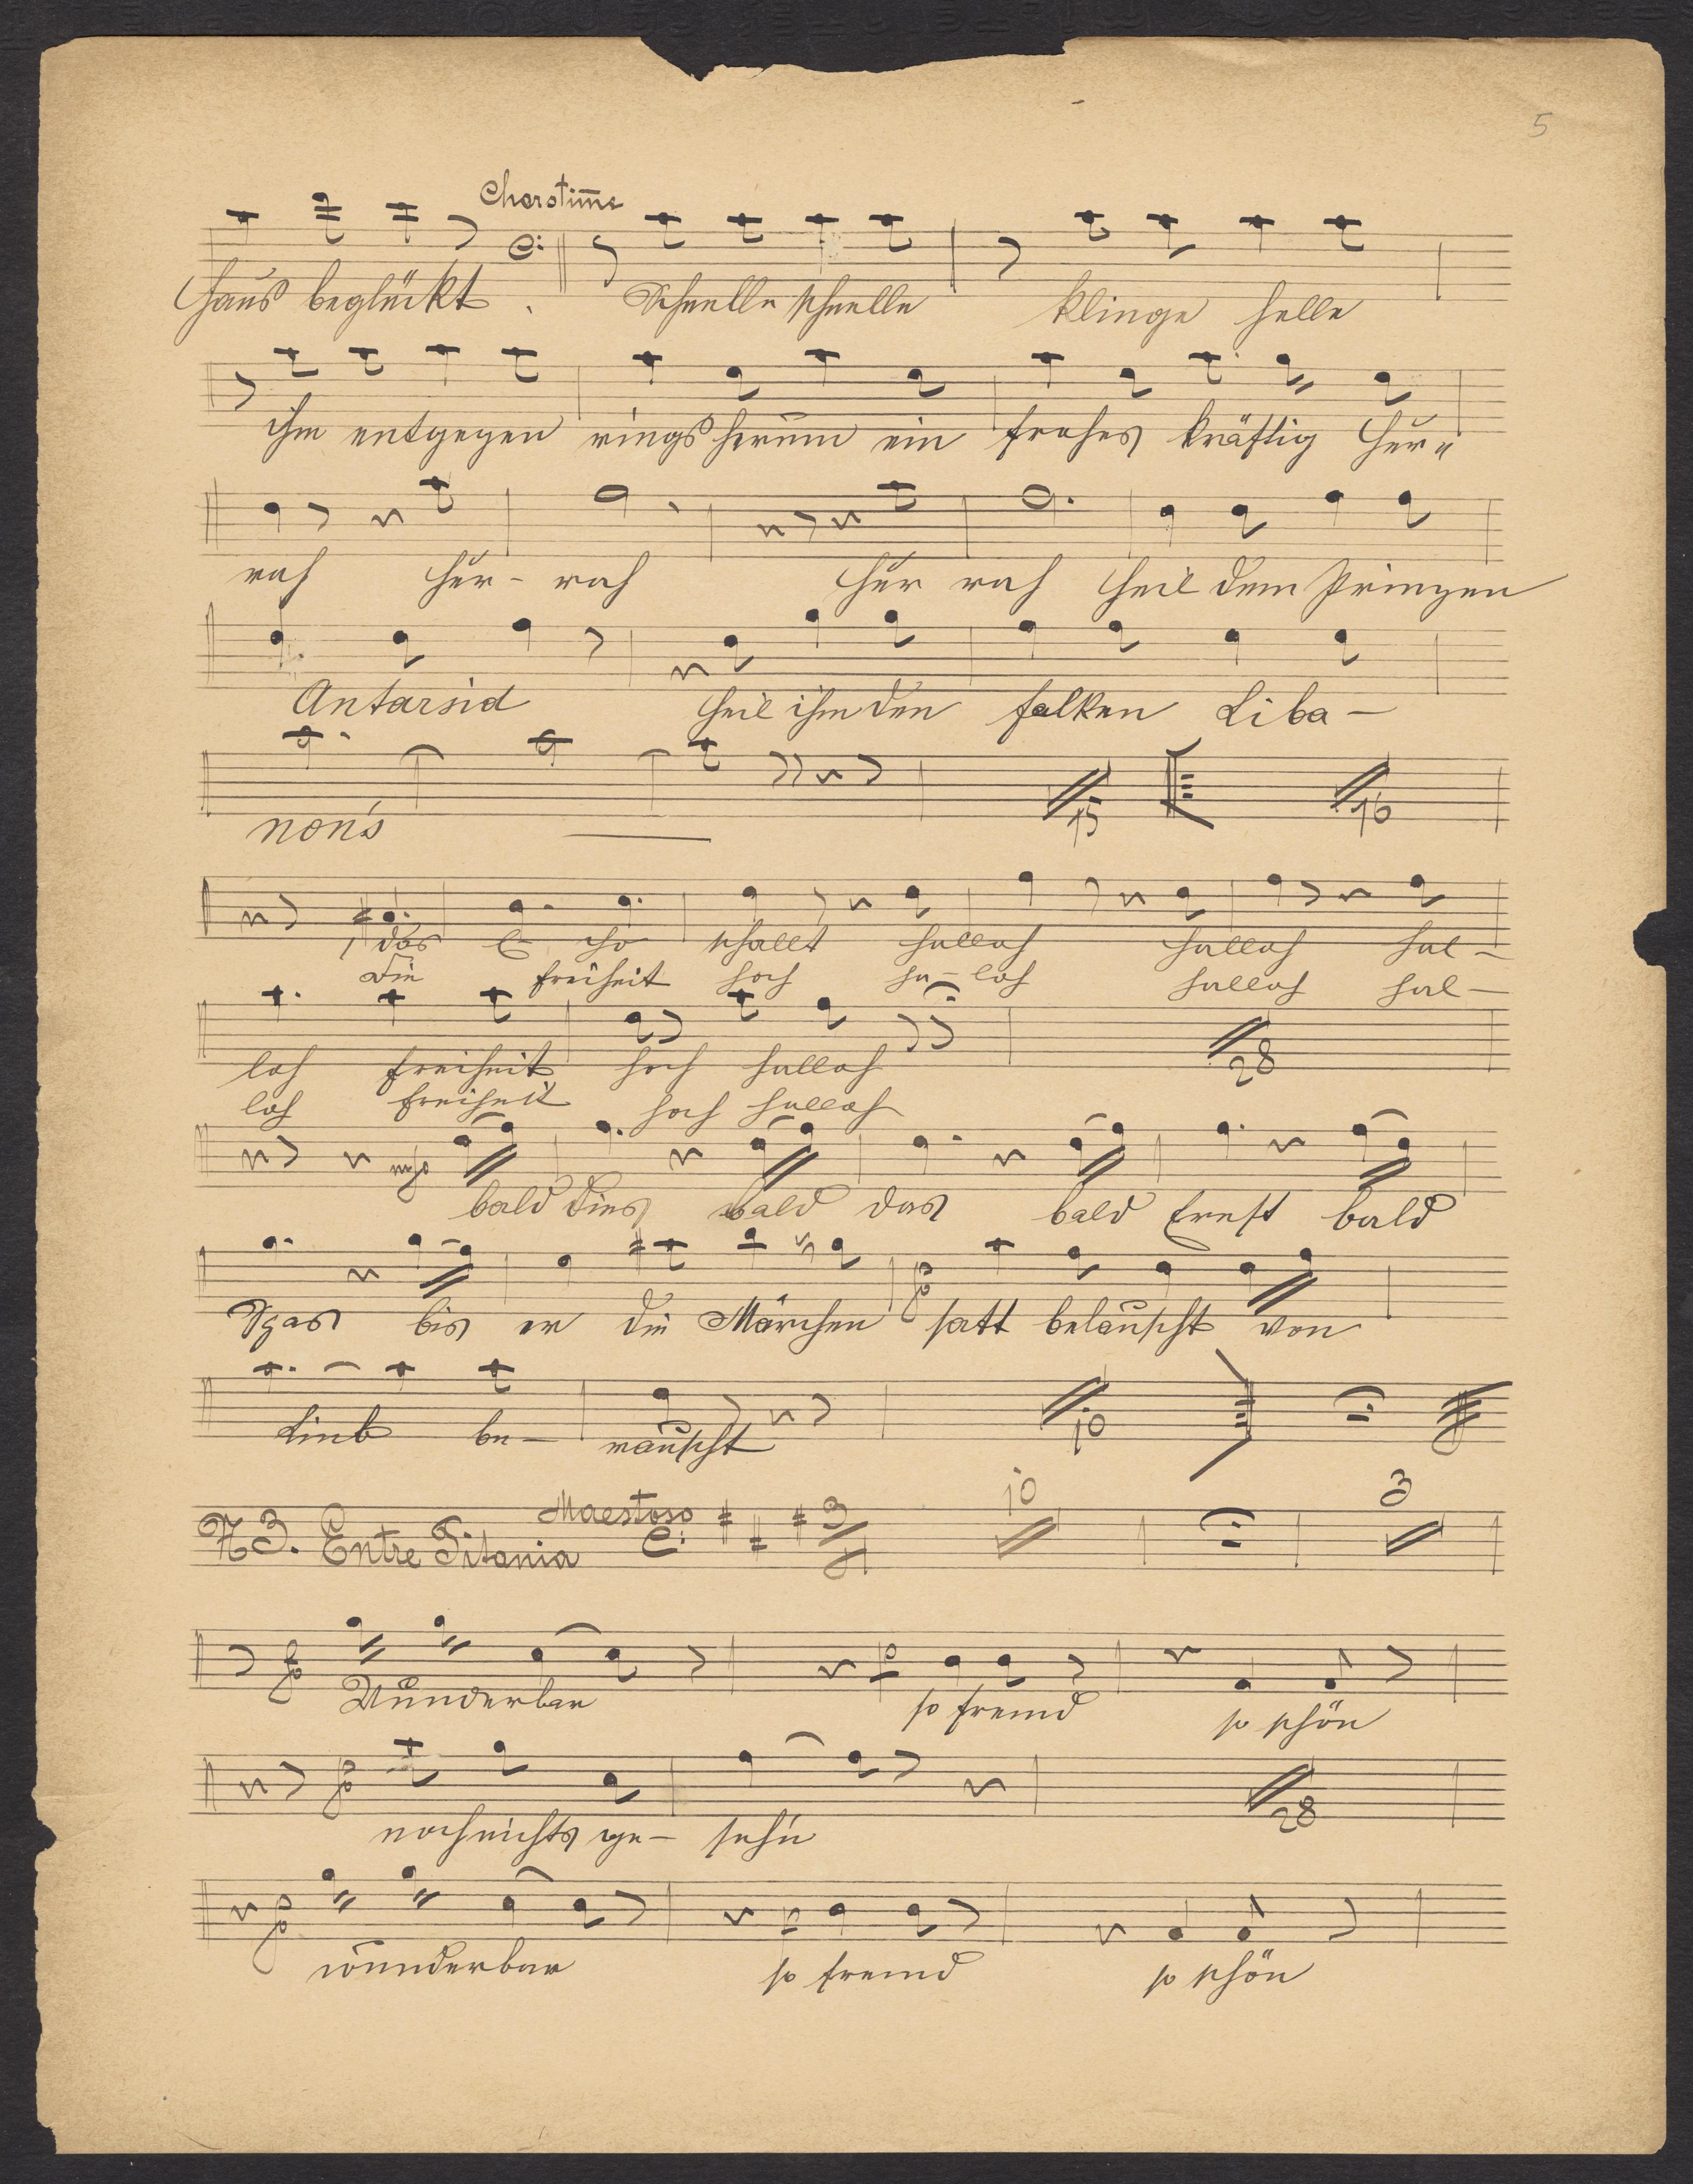 5
Chorstim̄e
Haus beglückt. Schnelle schnelle klinge helle
ihm entgegen rings herum ein frohes kräftig Hur-
rah Hur-rah Hur rah Heil dem Prinzen
Antarsid Heil ihm den falken Liba-
non's
15 16
, das E- cho schallt halloh halloh hal-
die freiheit hoch ha-loh halloh hal-
loh freiheit hoch halloh
28
loh freiheit hoch halloh
bald dies bald das bald Ernst bald
Spas bis er die Märchen satt belauscht von
Lieb be- rauscht
10
Maestoso 3 10 3
N 3. Entre Titania
Wunderbar so fremd so schön
noch nichts ge- seh'n
28
wunderbar so fremd so schön